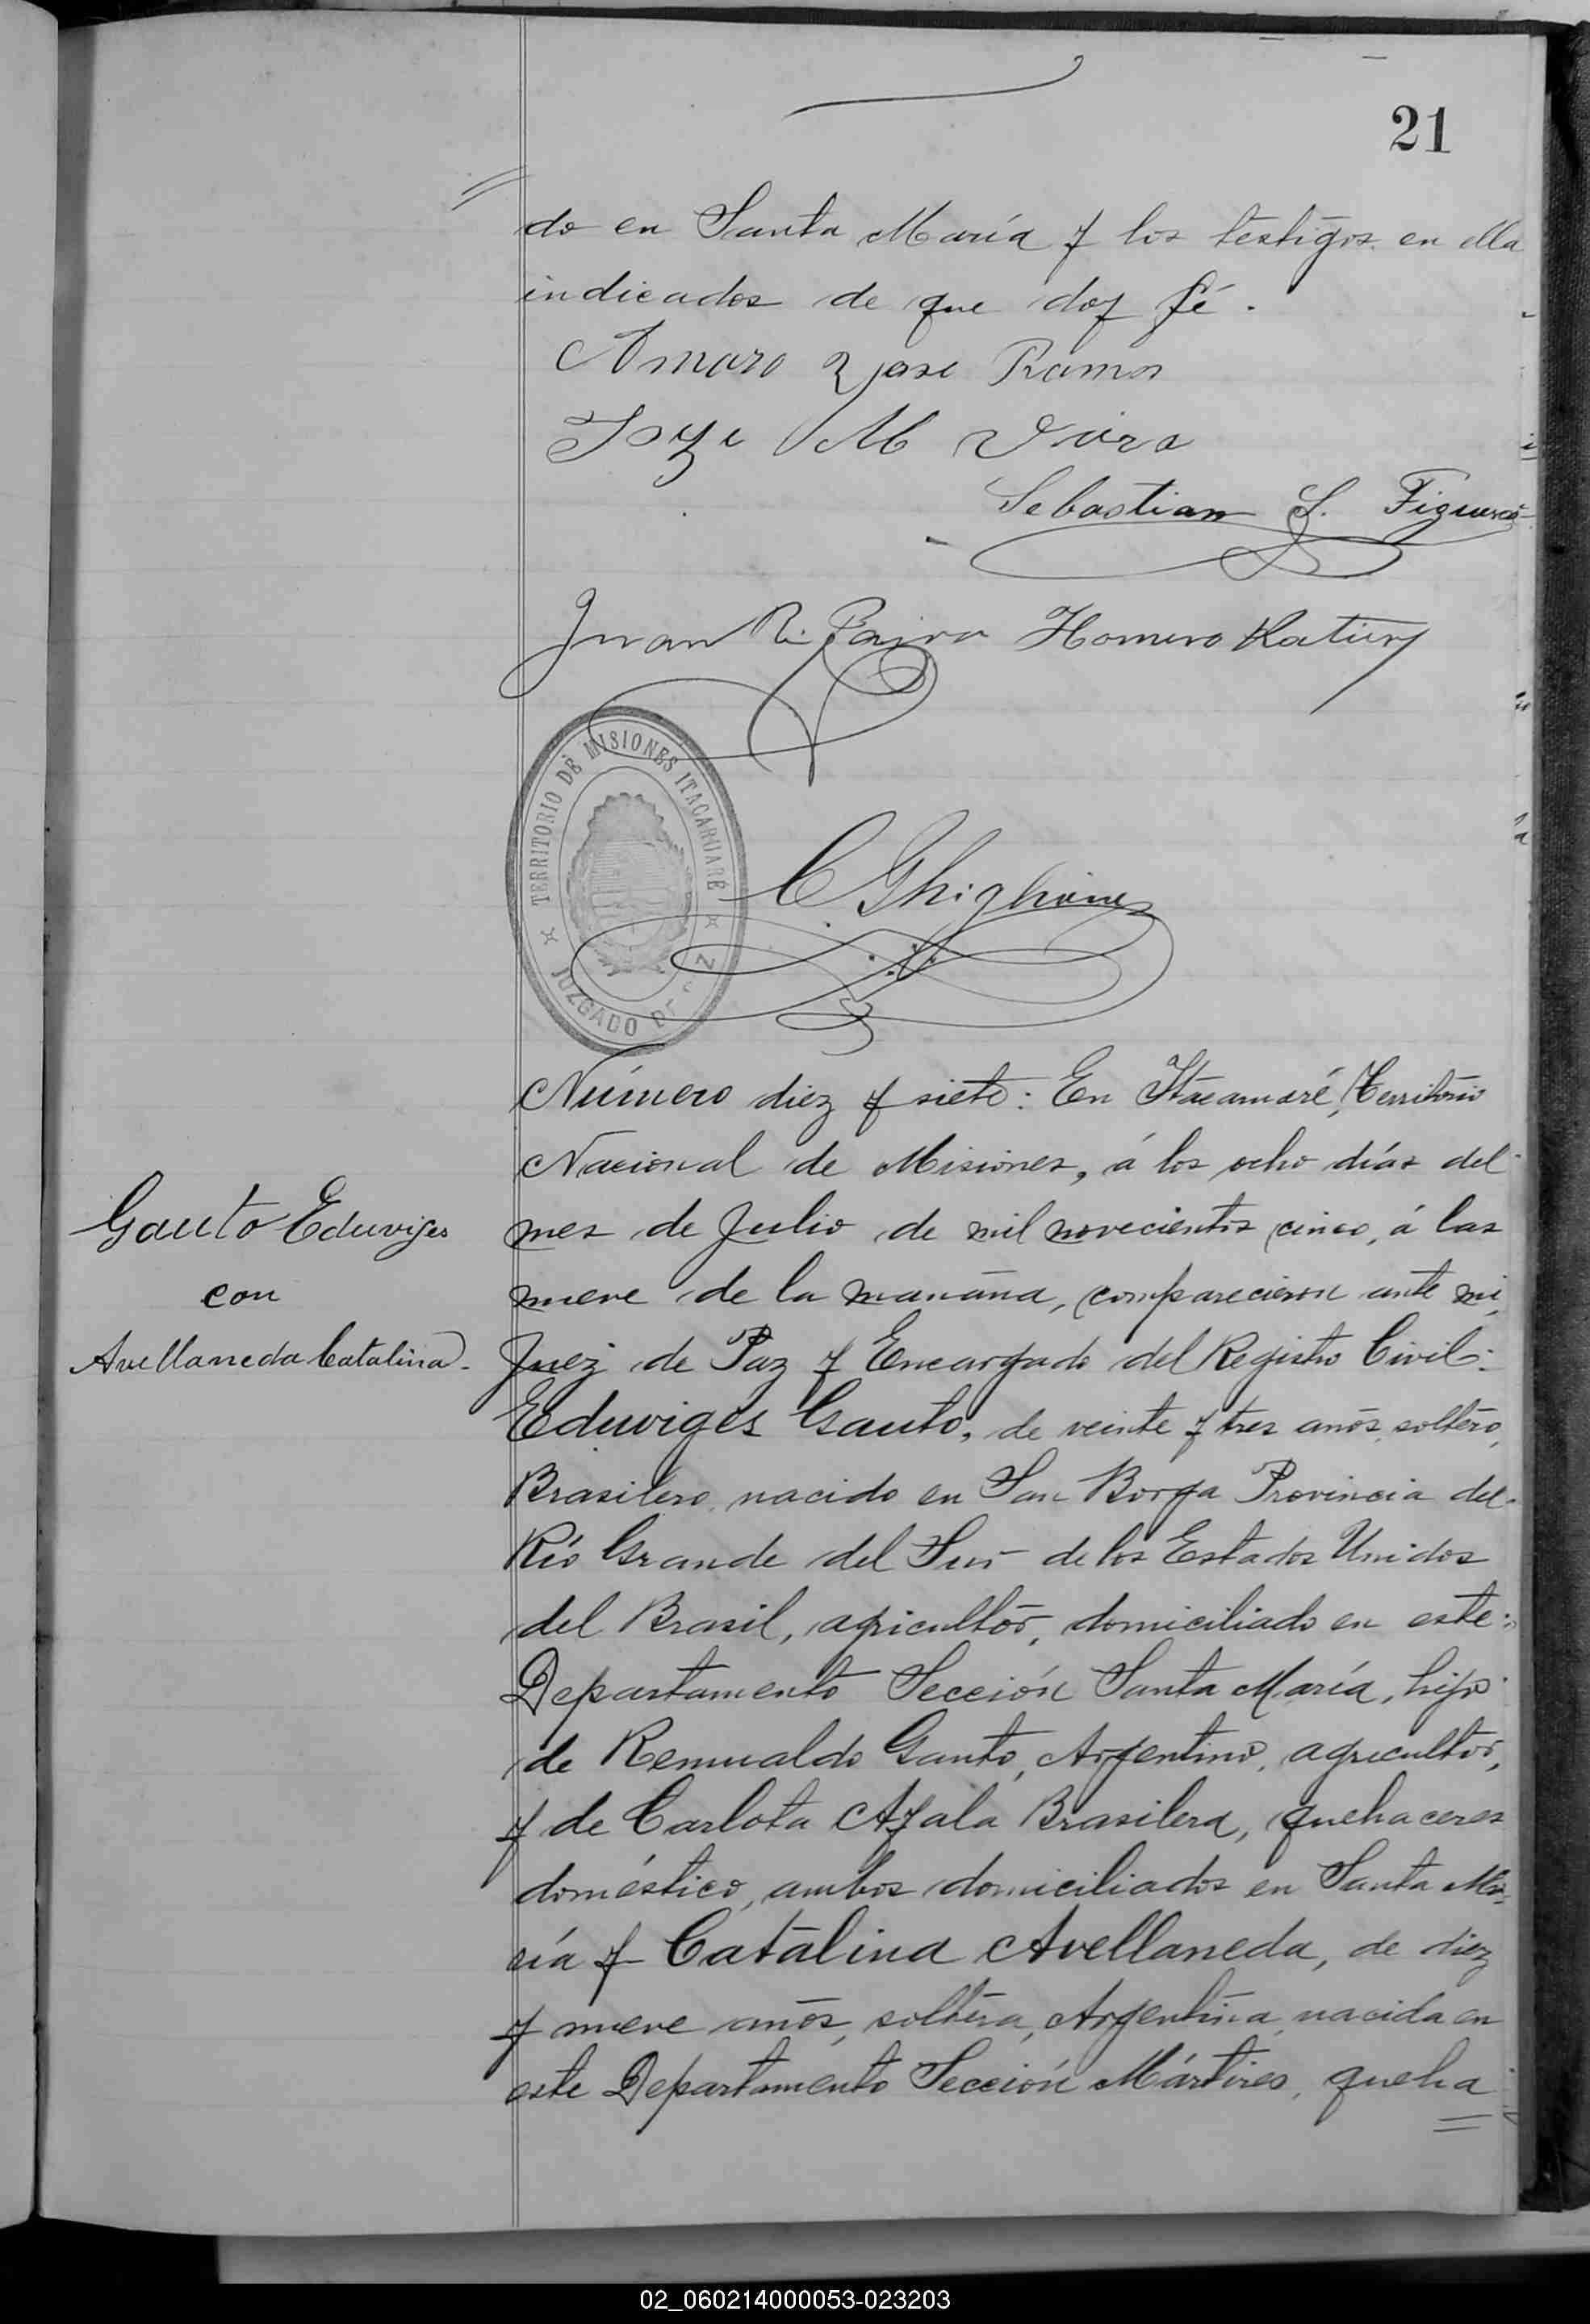 21
do en Santa María y los testigos en ella
indicados de que doy fé.
Amaro Jose Ramos
Joze M Viera
Sebastian S. Figueredo
Juan R. Paiva Homero
TERRITORIO DE MISIONES ITACARUARÉ
JUZGADO DE PAZ
C Ghiglione
Número diez y siete: En Itacaruaré, Territorio
Nacional de Misiones, á los ocho días del
mes de Julio de mil novecientos cinco, á las
nueve de la mañana, comparecieron ante mi,
Juez de Paz y Encargado del Registro Civil:
Eduviges Gauto, de veinte y tres años, soltero,
Brasilero, nacido en San Borja Provincia del
Río Grande del Sur de los Estados Unidos
del Brasil, agricultor, domiciliado en este
Departamento Sección Santa María, hijo
de Remualdo Gauto, Argentino, agricultor,
y de Carlota Ayala Brasilera, quehaceres
doméstico, ambos domiciliados en Santa Ma-
ría y Catalina Avellaneda, de diez
y nueve años, soltera, Argentina, nacida en
este Departamento Sección Mártires, queha
Gauto Eduviges
con
Avellaneda Catalina.
02_060214000053-023203